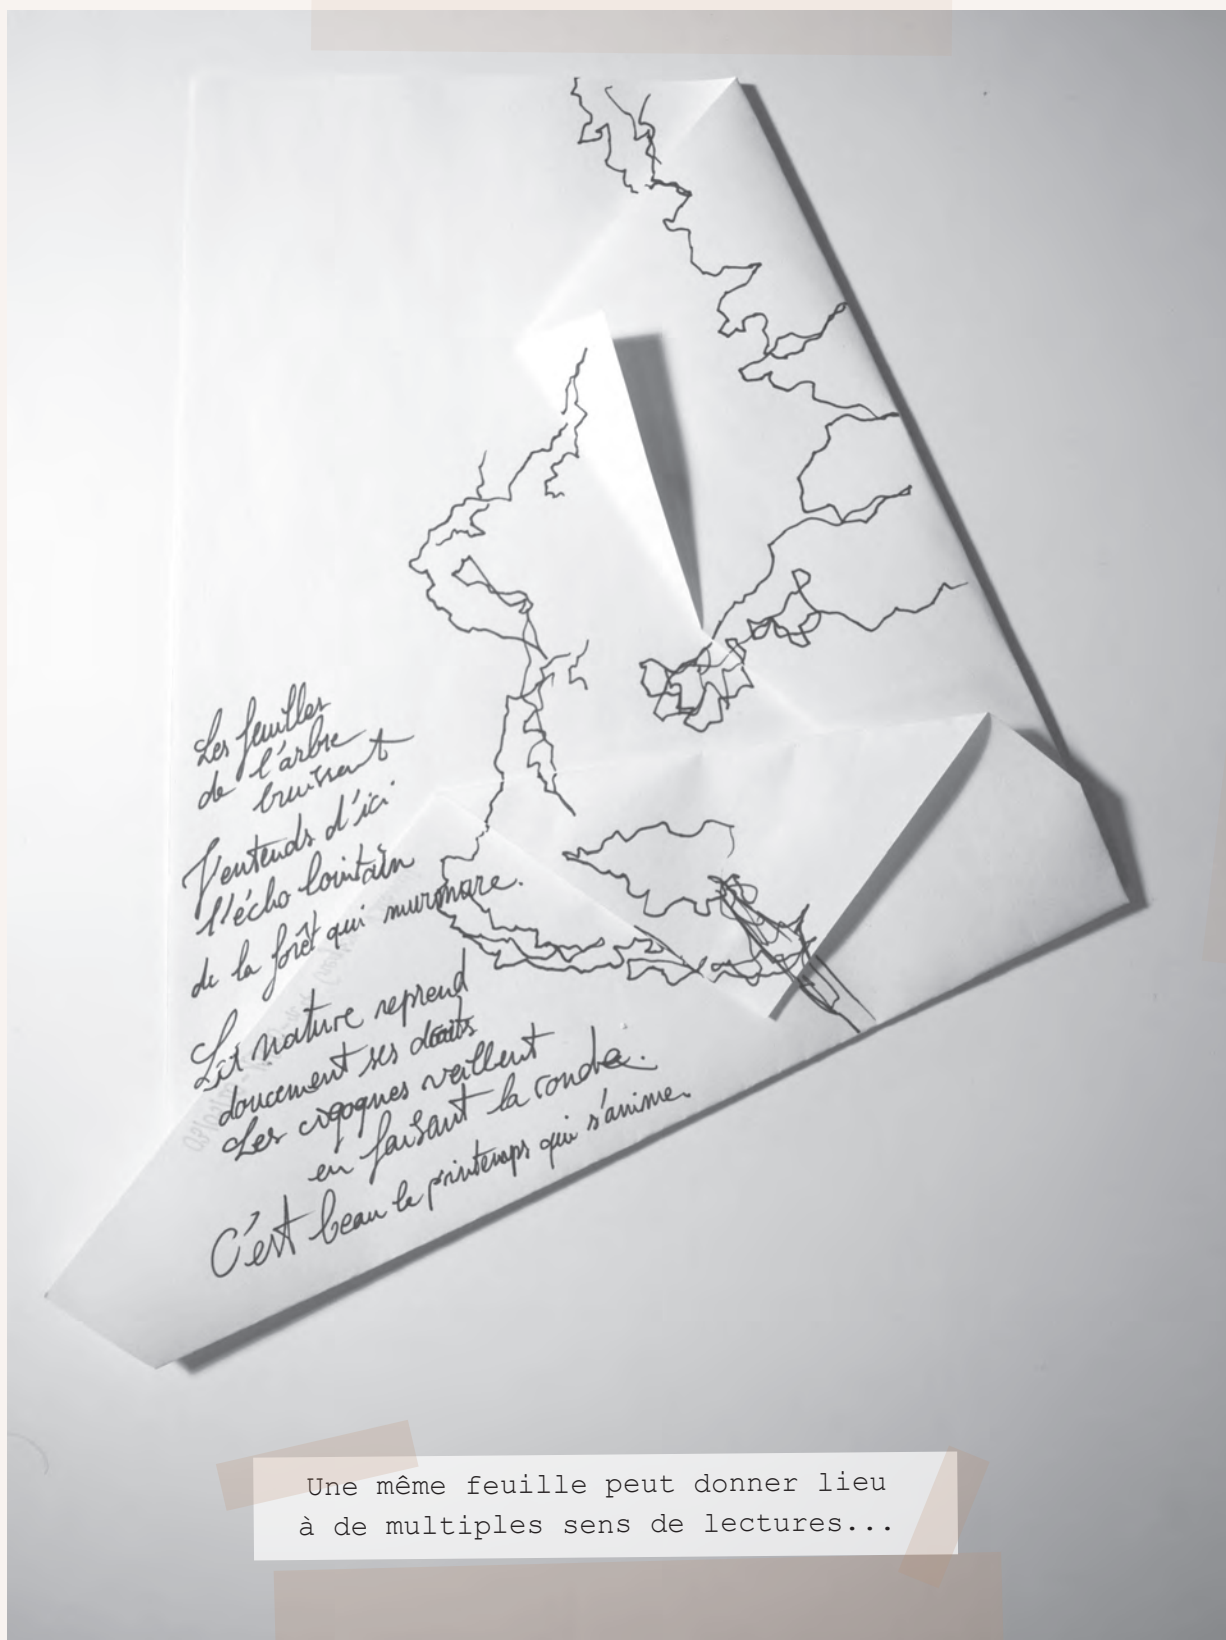 Les feuilles
de l'arbre
bruissent
J'entends d'ici
l'écho lointain
de la forêt qui murmure.
La nature reprend
doucement ses droits
Les cigognes veillent
en faisant la ronde.
C'est beau le printemps qui s'anime.
Une même feuille peut donner lieu
à de multiples sens de lectures...